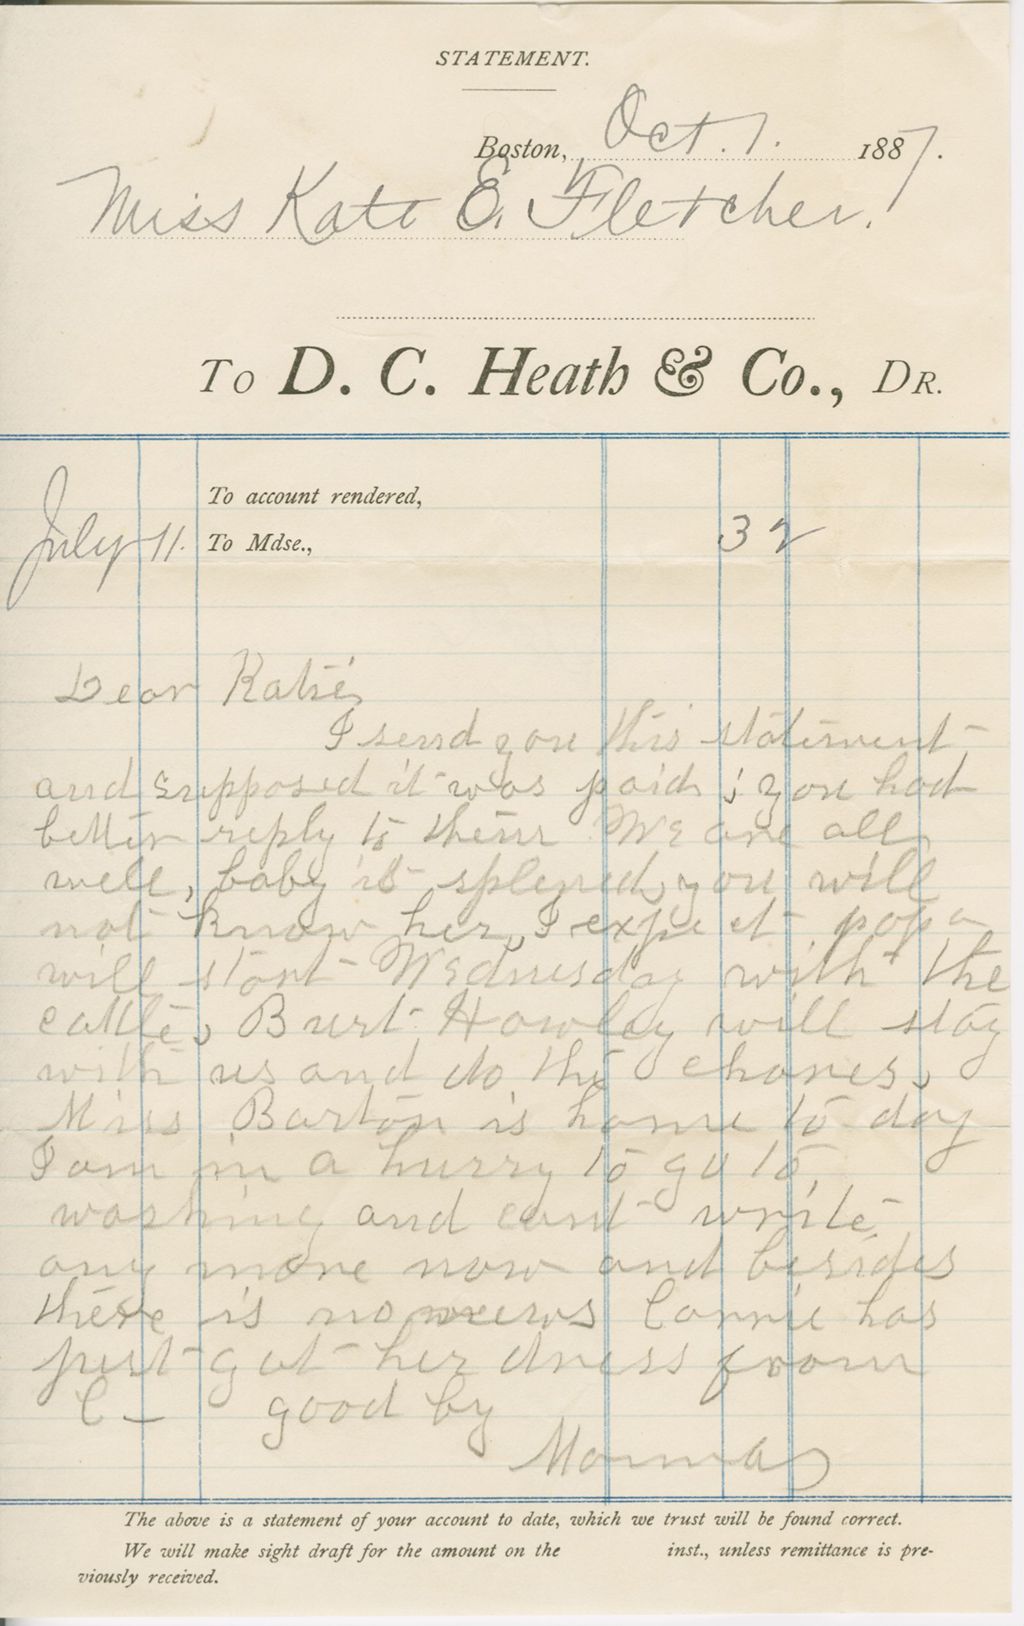 STATEMENT.
Boston, Oct. 1. 1887.
Miss Kate E. Fletcher.
To D. C. Heath & Co., Dr.
To account rendered,
July 11. To Mdse., 32
Dear Katie,
I send you this statement
and supposed it was paid; you had
better reply to them We are all
well, baby is splendid, you will
not know her, I expect papa
will start Wednesday with the
cattle, Burt Howley will stay
with us and do the chores,
Miss Barton is home to day
I am in a hurry to go to
washing and cant write
any more now and besides
there is no news Carrie has
just got her dress from
C — good by
Mamma
The above is a statement of your account to date, which we trust will be found correct.
We will make sight draft for the amount on the inst., unless remittance is pre-
viously received.